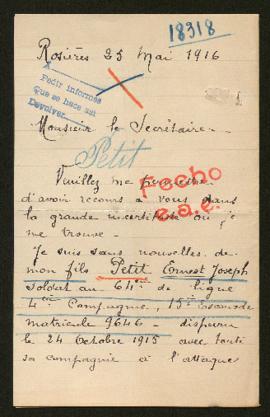 18318
Rosières 25 Mai 1916
Pedir informes
Que se hace
Devolver
Monsieur le Secrétaire -
Petit
fecho
Veuillez me permettre
d'avoir recours à vous dans
la grande incertitude où je
me trouve -
Je suis sans nouvelles de
mon fils Petit Ernest Joseph
soldat au 64e de ligne
4e Compagnie, 15e Escouade
matricule 9646 - disparu
le 24 Octobre 1915 avec toute
sa compagnie à l'attaque